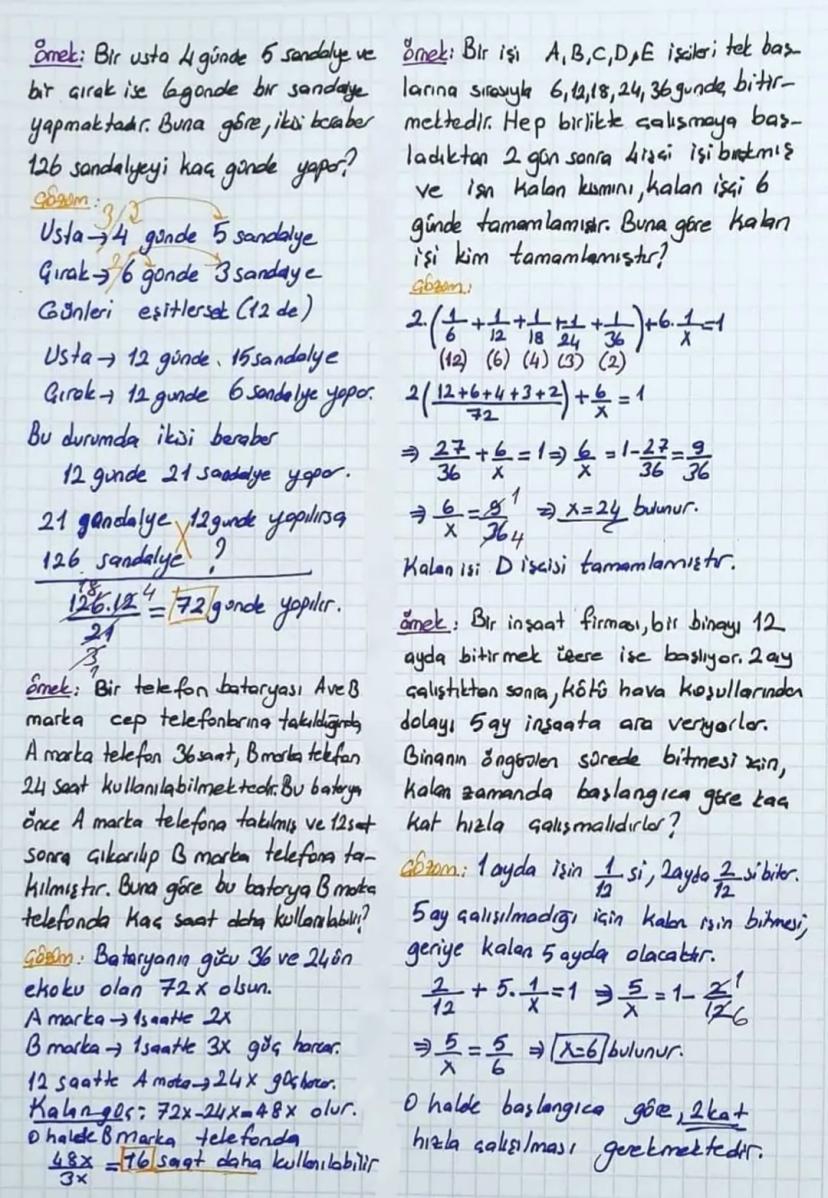 Örnek: Bir usta 4 günde 5 sandalye ve
bir çırak ise 6 günde bir sandalye
yapmaktadır. Buna göre, ikisi beraber
126 sandalyeyi kaç günde yapar?
Çözüm: 3/ 2
Usta → 4 günde 5 sandalye
Çırak → 6 günde 3 sandalye
Günleri eşitlersek (12 de)
Usta → 12 günde 15 sandalye
Çırak → 12 günde 6 sandalye yapar.
Bu durumda ikisi beraber
12 günde 21 sandalye yapar.
21 sandalye 12 günde yapılırsa
126 sandalye ?
126.12 / 21 = 72 günde yapılır.
Örnek: Bir telefon bataryası A ve B
marka cep telefonlarına takıldığında
A marka telefon 36 saat, B marka telefon
24 saat kullanılabilmektedir. Bu batarya
önce A marka telefona takılmış ve 12 saat
sonra çıkarılıp B marka telefona ta-
kılmıştır. Buna göre bu batarya B marka
telefonda kaç saat daha kullanılabilir?
Çözüm: Bataryanın gücü 36 ve 24 ün
ekoku olan 72x olsun.
A marka → 1 saatte 2x
B marka → 1 saatte 3x güç harcar.
12 saatte A marka → 24x güç harcar.
Kalan güç: 72x-24x=48x olur.
O halde B marka telefonda
48x/3x = 16 saat daha kullanılabilir
Örnek: Bir işi A,B,C,D,E işçileri tek baş-
larına sırasıyla 6,12,18,24,36 günde bitir-
mektedir. Hep birlikte çalışmaya baş-
ladıktan 2 gün sonra 4 işçi işi bırakmış
ve işin kalan kısmını, kalan işçi 6
günde tamamlamıştır. Buna göre kalan
işi kim tamamlamıştır?
Çözüm:
2.(1/6 + 1/12 + 1/18 + 1/24 + 1/36) + 6.1/x = 1
(12) (6) (4) (3) (2)
2((12+6+4+3+2)/72) + 6/x = 1
⇒ 27/36 + 6/x = 1 ⇒ 6/x = 1 - 27/36 = 9/36
⇒ 6/x = 9/36 1 4 ⇒ x=24 bulunur.
Kalan işi D işçisi tamamlamıştır.
Örnek: Bir inşaat firması, bir binayı 12
ayda bitirmek üzere işe başlıyor. 2 ay
çalıştıktan sonra, kötü hava koşullarından
dolayı 5 ay inşaata ara veriyorlar.
Binanın öngörülen sürede bitmesi için,
kalan zamanda başlangıca göre kaç
kat hızla çalışmalıdırlar?
Çözüm: 1 ayda işin 1/12 si, 2 ayda 2/12 si biter.
5 ay çalışılmadığı için kalan işin bitmesi,
geriye kalan 5 ayda olacaktır.
2/12 + 5.1/x = 1 ⇒ 5/x = 1 - 2/12 1 6
⇒ 5/x = 5/6 ⇒ x=6 bulunur.
O halde başlangıca göre, 2 kat
hızla çalışılması gerekmektedir.